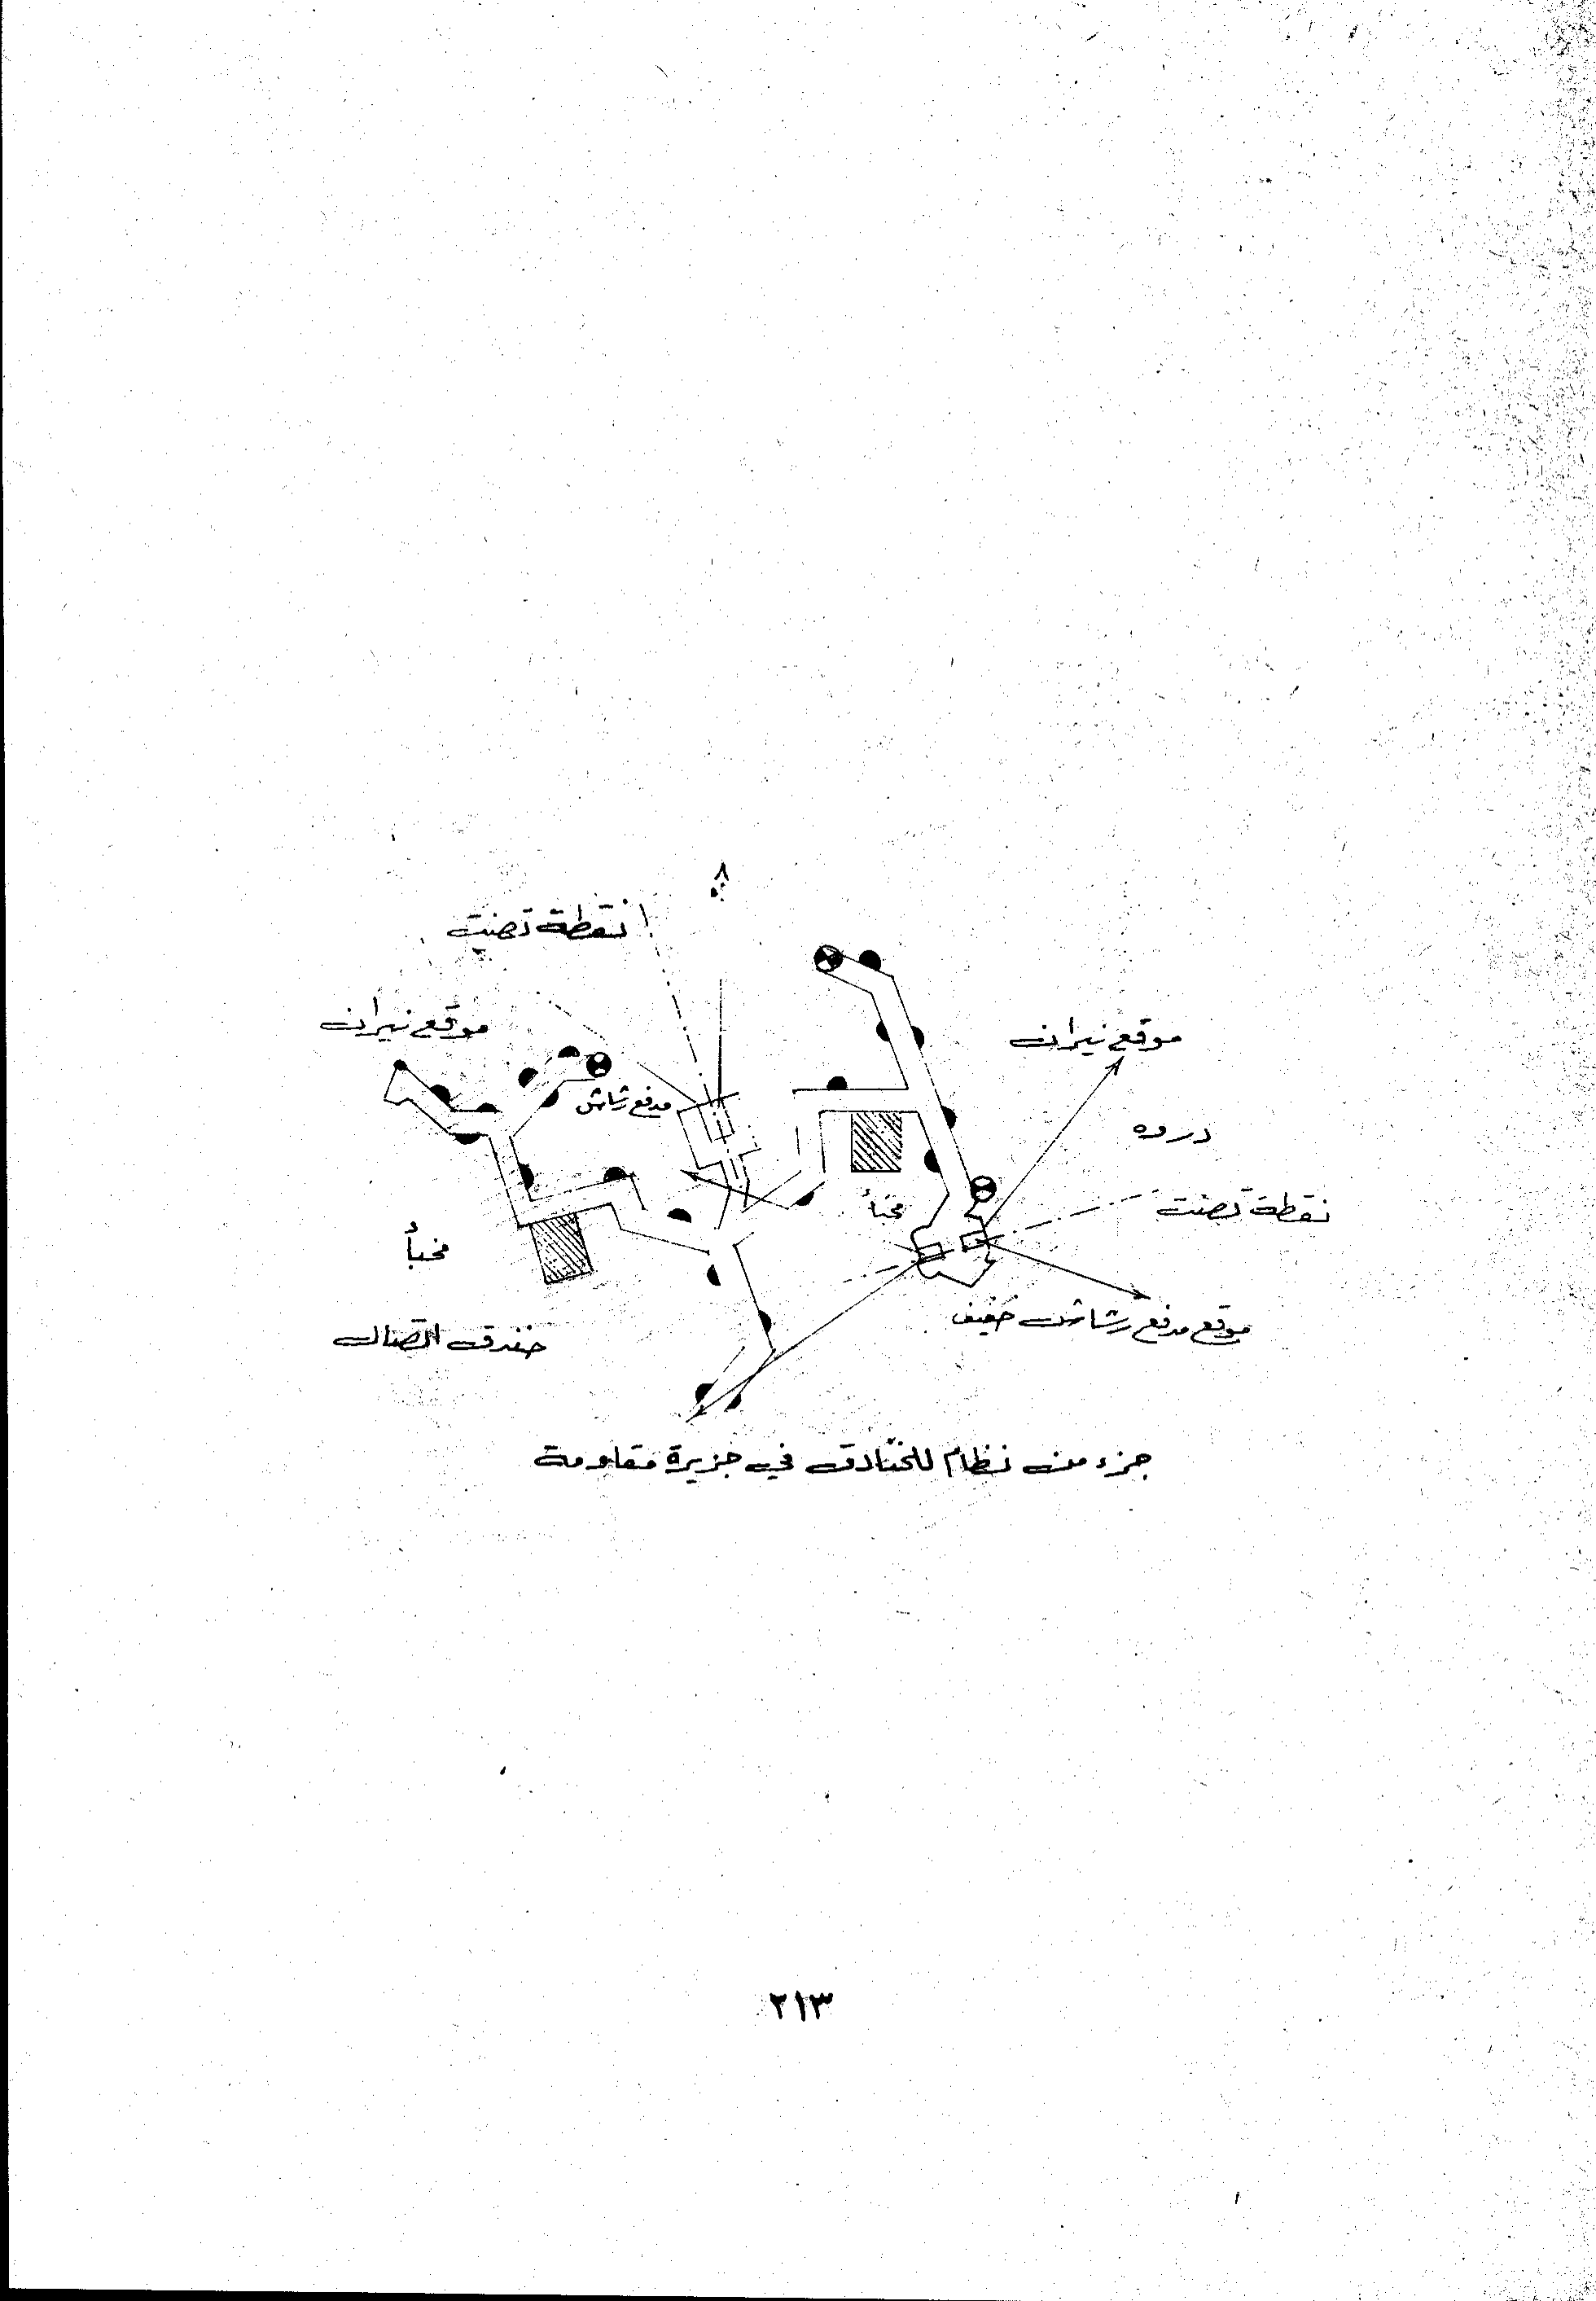 نقطة تصنت
موقع نيران
موقع نيران
مدفع رشاش
نقطة تصنت
مخبأ
مخبأ
موقع مدفع رشاش خفيف
خندق اتصال
جزء من نظام للخنادق في جزيرة مقاومة
٢١٣